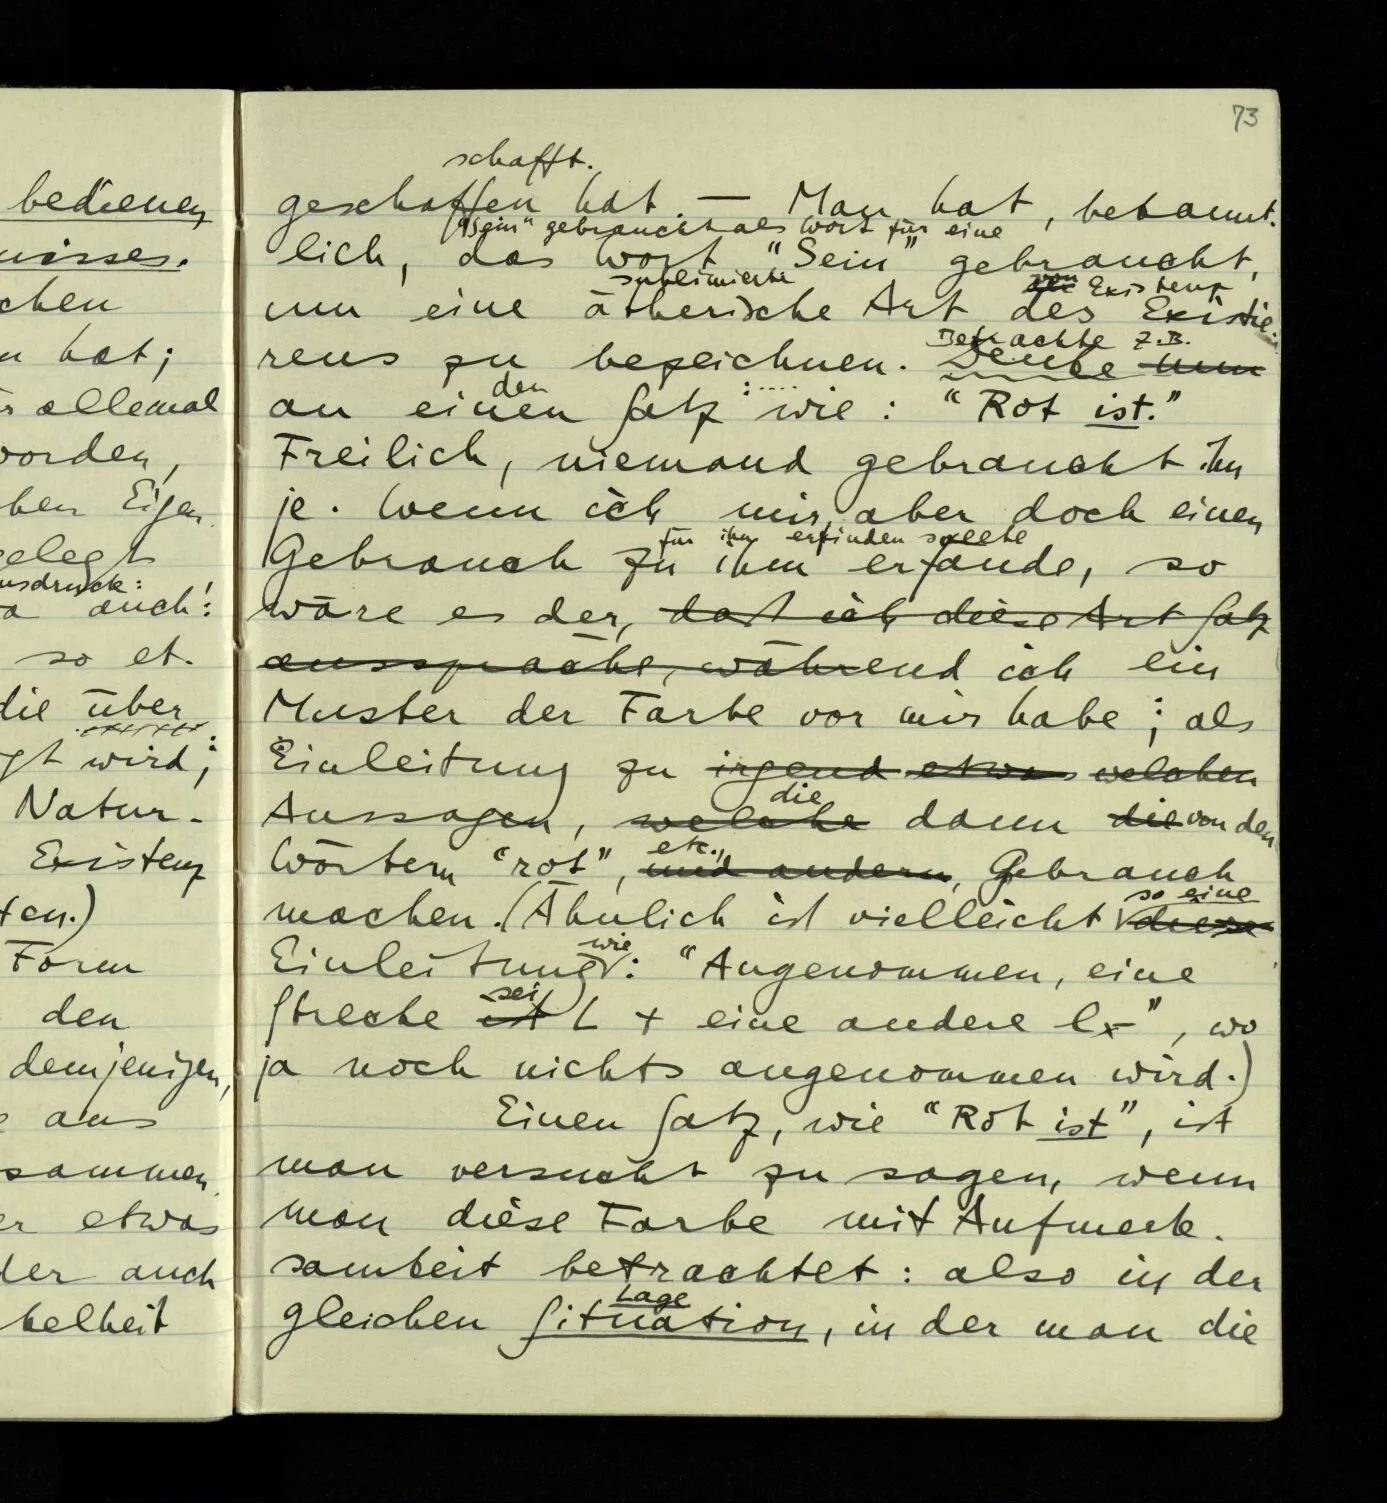 73
bedienen
nisses.
chen
hat;
allemal
worden,
ben Eigen
gelegt
usdruck:
auch:
so et-
die über
gt wird;
Natur-
Existenz
ten.)
Form
den
demjenigen,
aus
sammen
er etwas
der auch
kelheit
schafft.
geschaffen hat. — Man hat, bekannt-
"Sein" gebraucht als Wort für eine
lich, das Wort "Sein" gebraucht,
sublimierte von Existenz
um eine ätherische Art des Existie-
Betrachte z.B.
rens zu bezeichnen. Denke nun
den
an einen Satz wie: "Rot ist."
Freilich, niemand gebraucht ihn
je. Wenn ich mir aber doch einen
für ihn erfinden sollte
Gebrauch zu ihm erfände, so
wäre es der, daß ich diese Art Satz
ausspräche, während ich ein
Muster der Farbe vor mir habe; als
Einleitung zu irgend etwas welchen
die
Aussagen, welche dann die von den
etc.,
Wörtern "rot", und andern, Gebrauch
so eine
machen. (Ähnlich ist vielleicht diese
wie
Einleitung: "Angenommen, eine
sei
Strecke ist L + eine andere l", wo
ja noch nichts angenommen wird.)
Einen Satz, wie "Rot ist", ist
man versucht zu sagen, wenn
man diese Farbe mit Aufmerk-
samkeit betrachtet: also in der
Lage
gleichen Situation, in der man die